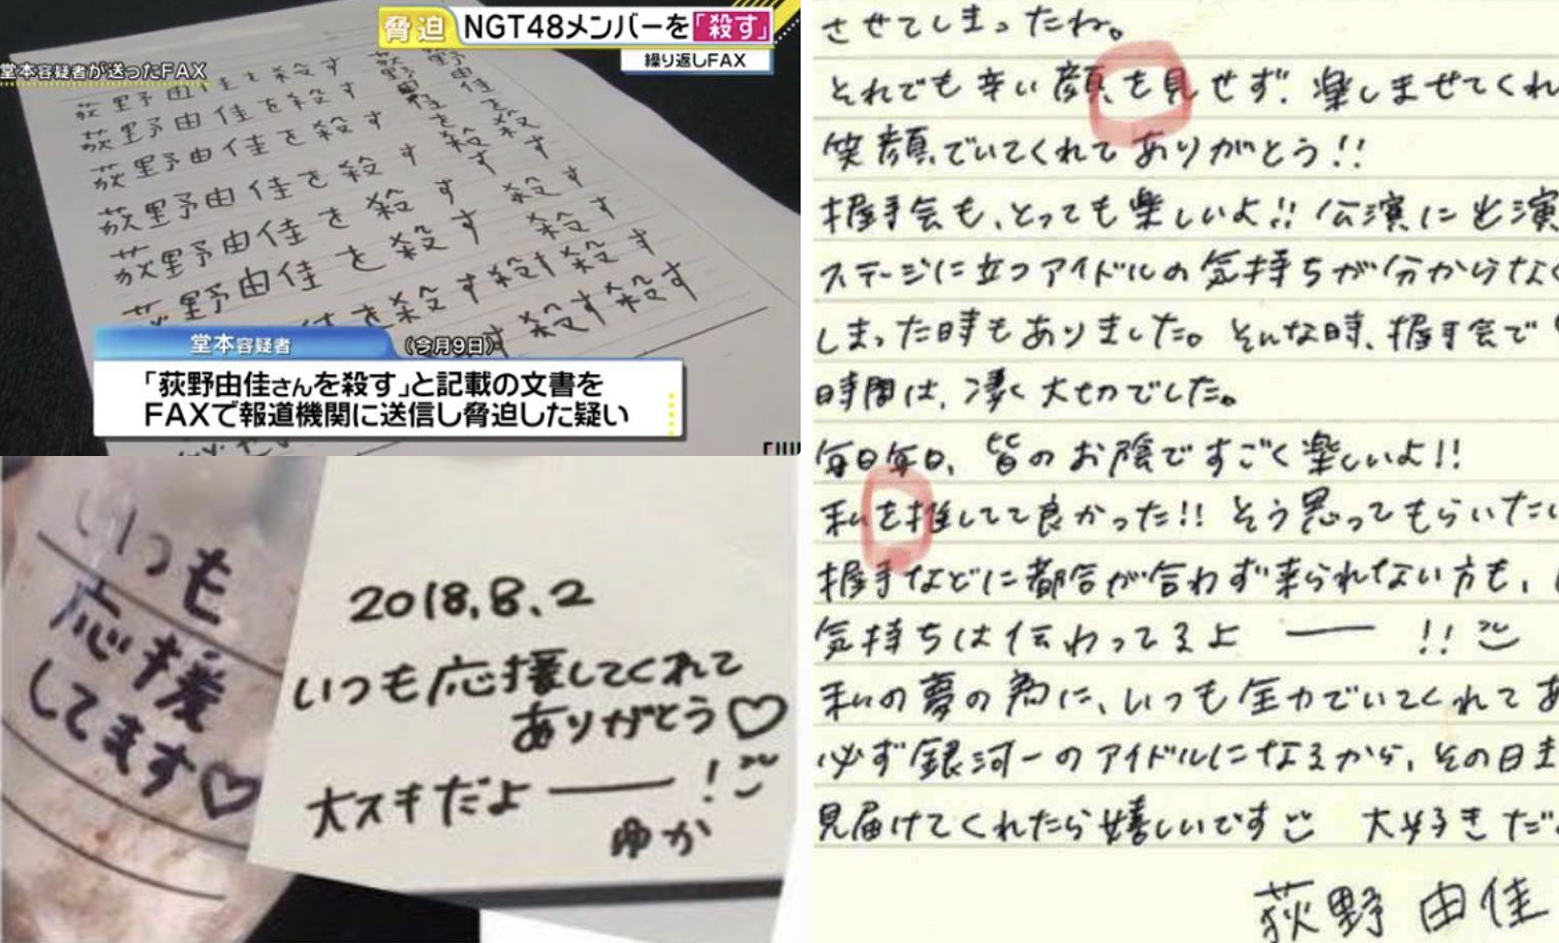 脅迫 NGT48メンバーを「殺す」
繰り返しFAX
堂本容疑者が送ったFAX
荻野由佳を殺す 荻野由佳を殺す
荻野由佳を殺す 荻野由佳を殺す
荻野由佳を殺す
荻野由佳を殺す 殺す
荻野由佳を殺す 殺す
荻野由佳を殺す 殺す
を殺す殺す殺す
す 殺す殺す
堂本容疑者 (今月9日)
「荻野由佳さんを殺す」と記載の文書を
FAXで報道機関に送信し脅迫した疑い
いつも
応援
してます♡
2018.8.2
いつも応援してくれて
ありがとう♡
大スキだよ――!
ゆか
させてしまったね。
それでも辛い顔を見せず、楽しませてくれ
笑顔でいてくれてありがとう!!
握手会も、とっても楽しいよ!! 公演に出演
ステージに立つアイドルの気持ちが分からなく
しまった時もありました。そんな時、握手会で
時間は、凄く大切でした。
毎日毎日、皆のお陰ですごく楽しいよ!!
私を推してて良かった!! そう思ってもらいたい
握手などに都合が合わず来られない方も、
気持ちは伝わってるよ ―― !!
私の夢の為に、いつも全力でいてくれてあ
必ず銀河一のアイドルになるから、その日ま
見届けてくれたら嬉しいです 大好きだ
荻野由佳